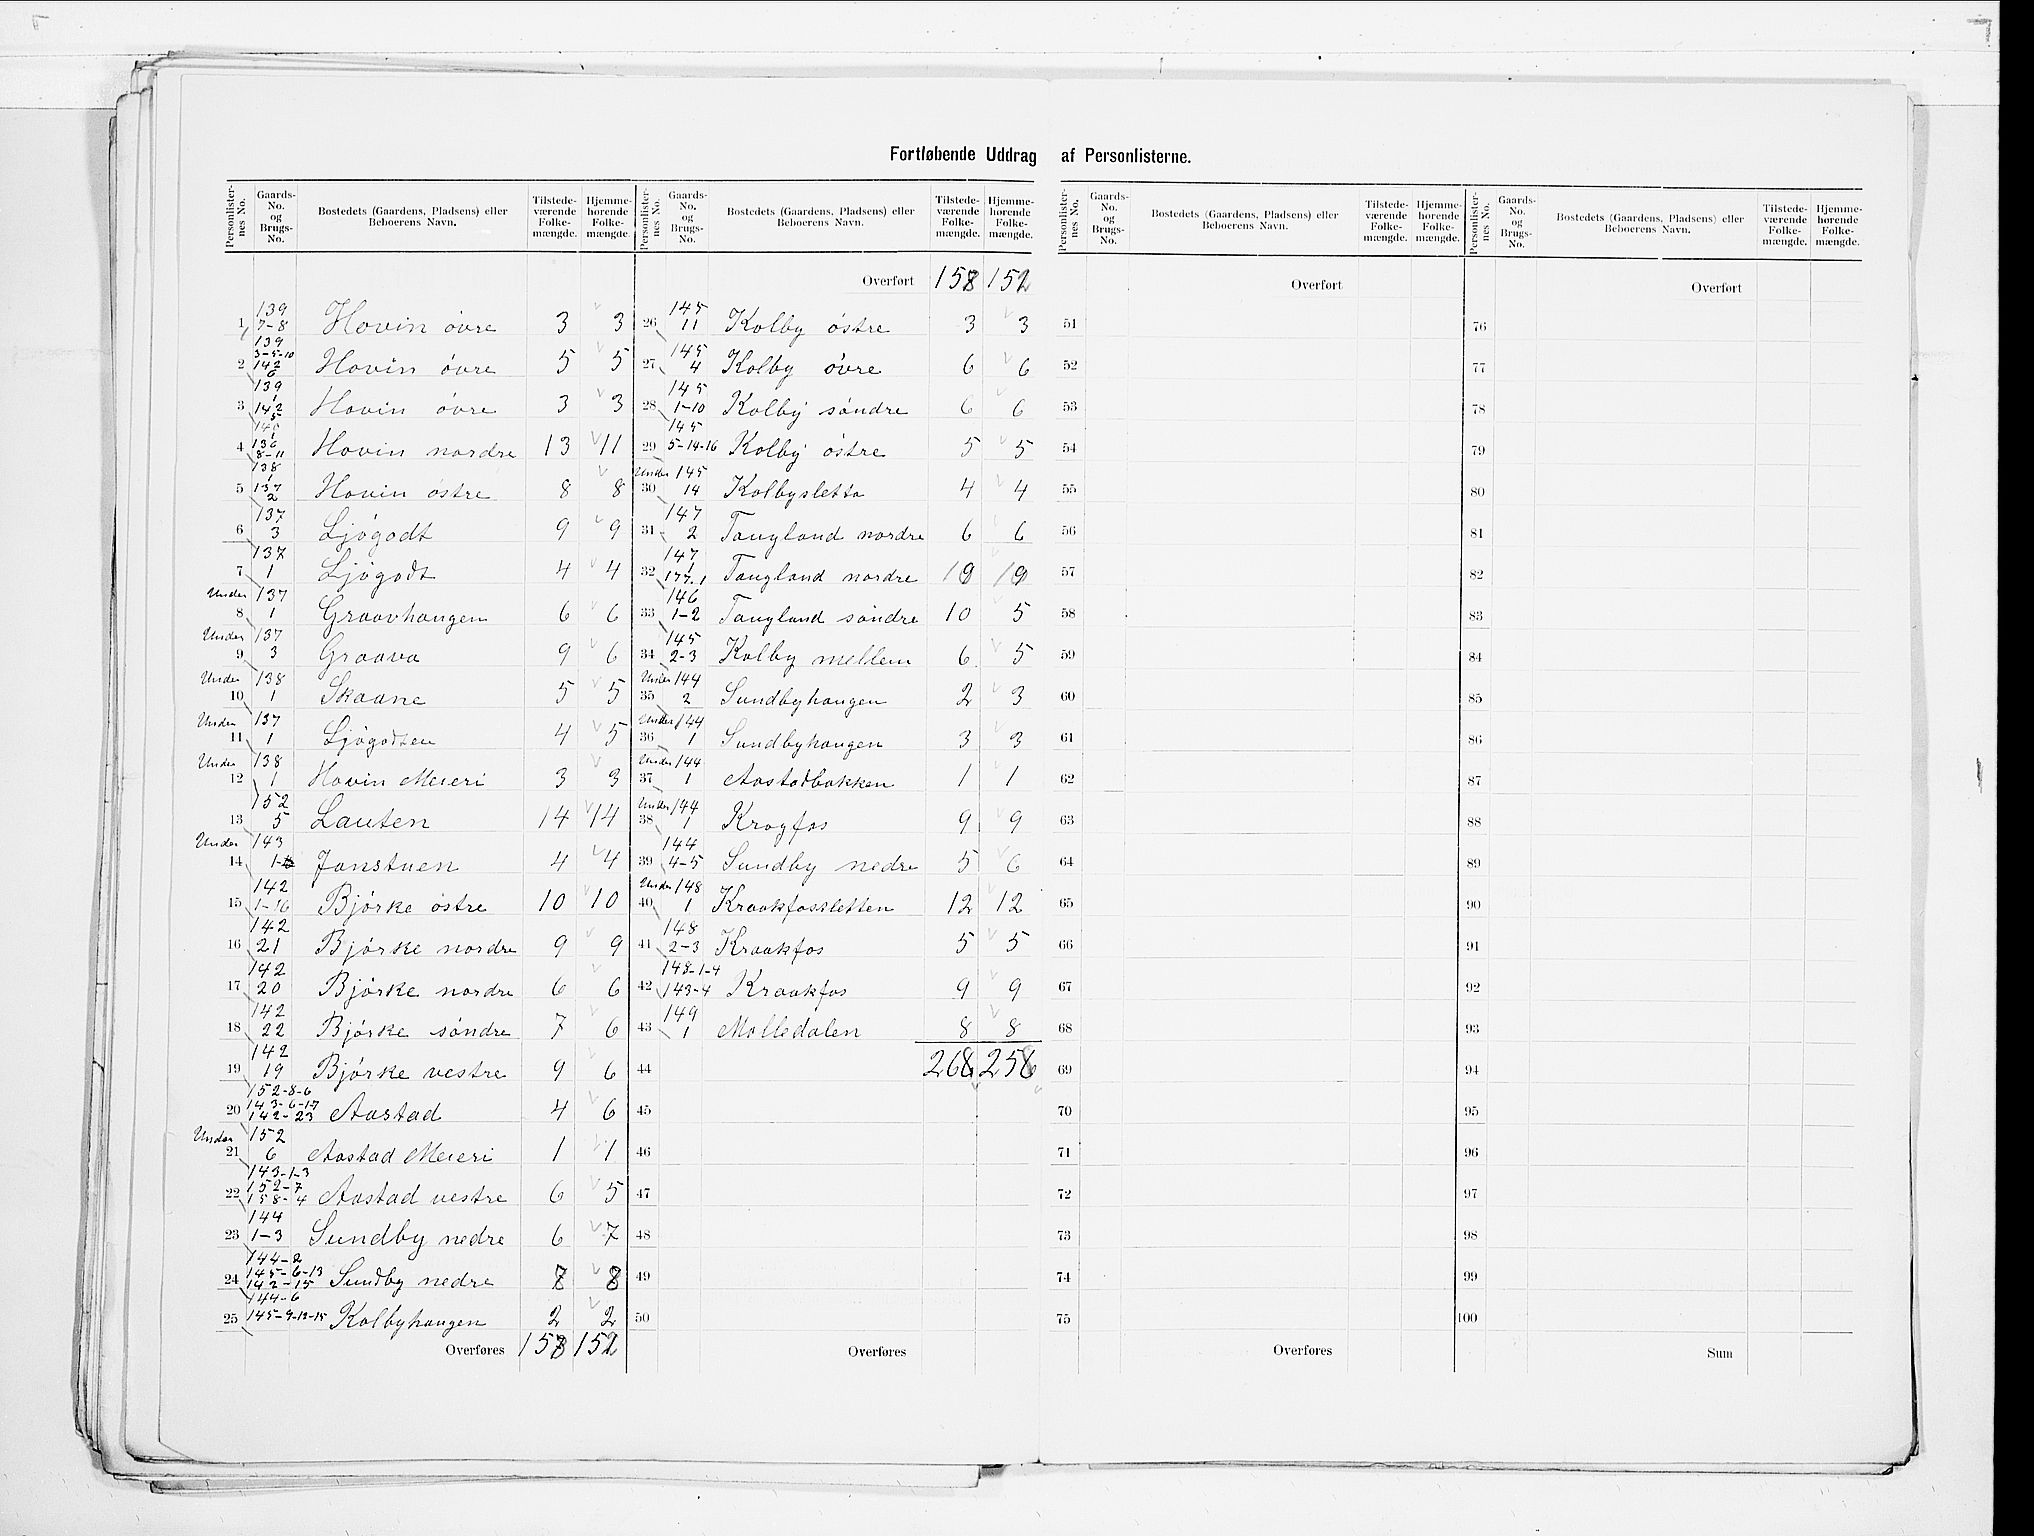 Fortløbende Uddrag af Personlisterne.
Personlisternes No. Gaards-No. og Brugs-No. Bostedets (Gaardens, Pladsens) eller Beboerens Navn. Tilstedeværende Folkemængde. Hjemmehørende Folkemængde.
Personlisternes No. Gaards-No. og Brugs-No. Bostedets (Gaardens, Pladsens) eller Beboerens Navn. Tilstedeværende Folkemængde. Hjemmehørende Folkemængde.
Personlisternes No. Gaards-No. og Brugs-No. Bostedets (Gaardens, Pladsens) eller Beboerens Navn. Tilstedeværende Folkemængde. Hjemmehørende Folkemængde.
Personlisternes No. Gaards-No. og Brugs-No. Bostedets (Gaardens, Pladsens) eller Beboerens Navn. Tilstedeværende Folkemængde. Hjemmehørende Folkemængde.
1 139 7-8 Hovin övre 3 3
2 139 3-5-10 142 6 Hovin övre 5 5
3 139 1 142 5 Hovin övre 3 3
4 140 1 136 8-11 Hovin nordre 13 11
5 138 1 137 2 Hovin östre 8 8
6 137 3 Ljögodt 9 9
7 137 1 Ljögodt 4 4
8 Under 137 1 Graavhaugen 6 6
9 Under 137 3 Graava 9 6
10 Under 138 1 Skaane 5 5
11 Under 137 1 Ljögodsen 4 5
12 Under 138 1 Hovin Meieri 3 3
13 152 5 Lauten 14 14
14 Under 143 Jonstuen 4 4
15 142 1-16 Bjørke östre 10 10
16 142 21 Bjørke nordre 9 9
17 142 20 Bjørke nordre 6 6
18 142 22 Bjørke söndre 7 6
19 142 19 Bjørke vestre 9 6
20 152-8-6 143-6-1-7 142-23 Aastad 4 6
21 Under 152 6 Aastad Meieri 1 1
22 143-1-3 152-7 158-4 Aastad vestre 6 5
23 144 1-3 Sundby nedre 6 7
24 144-2 145-6-13 142-15 Sundby nedre 8
25 144-6 145-9-12-15 Kolbyhaugen 2 2
Overføres 158 152
Overført 158 152
26 145 11 Kolby östre 3 3
27 145 4 Kolby övre 6 6
28 145 1-10 Kolby söndre 6 6
29 145 5-14-16 Kolby östre 5 5
30 Under 145 14 Kolbysletta 4 4
31 147 2 Tangland nordre 6 6
32 147 1 177.1 Tangland nordre 19 19
33 146 1-2 Tangland söndre 10 5
34 145 2-3 Kolby mellem 6 5
35 Under 144 2 Sundbyhaugen 2 3
36 Under 144 1 Sundbyhaugen 3 3
37 Under 144 1 Aastadbakken 1 1
38 Under 144 1 Krogfos 9 9
39 144 4-5 Sundby nedre 5 6
40 Under 148 1 Kraakfossletten 12 12
41 148 2-3 Kraakfos 5 5
42 148-1-4 143-4 Kraakfos 9 9
43 149 1 Molledalen 8 8
44 268 256
45
46
47
48
49
50
Overføres
Overført
51
52
53
54
55
56
57
58
59
60
61
62
63
64
65
66
67
68
69
70
71
72
73
74
75
Overføres
Overført
76
77
78
79
80
81
82
83
84
85
86
87
88
89
90
91
92
93
94
95
96
97
98
99
100
Sum